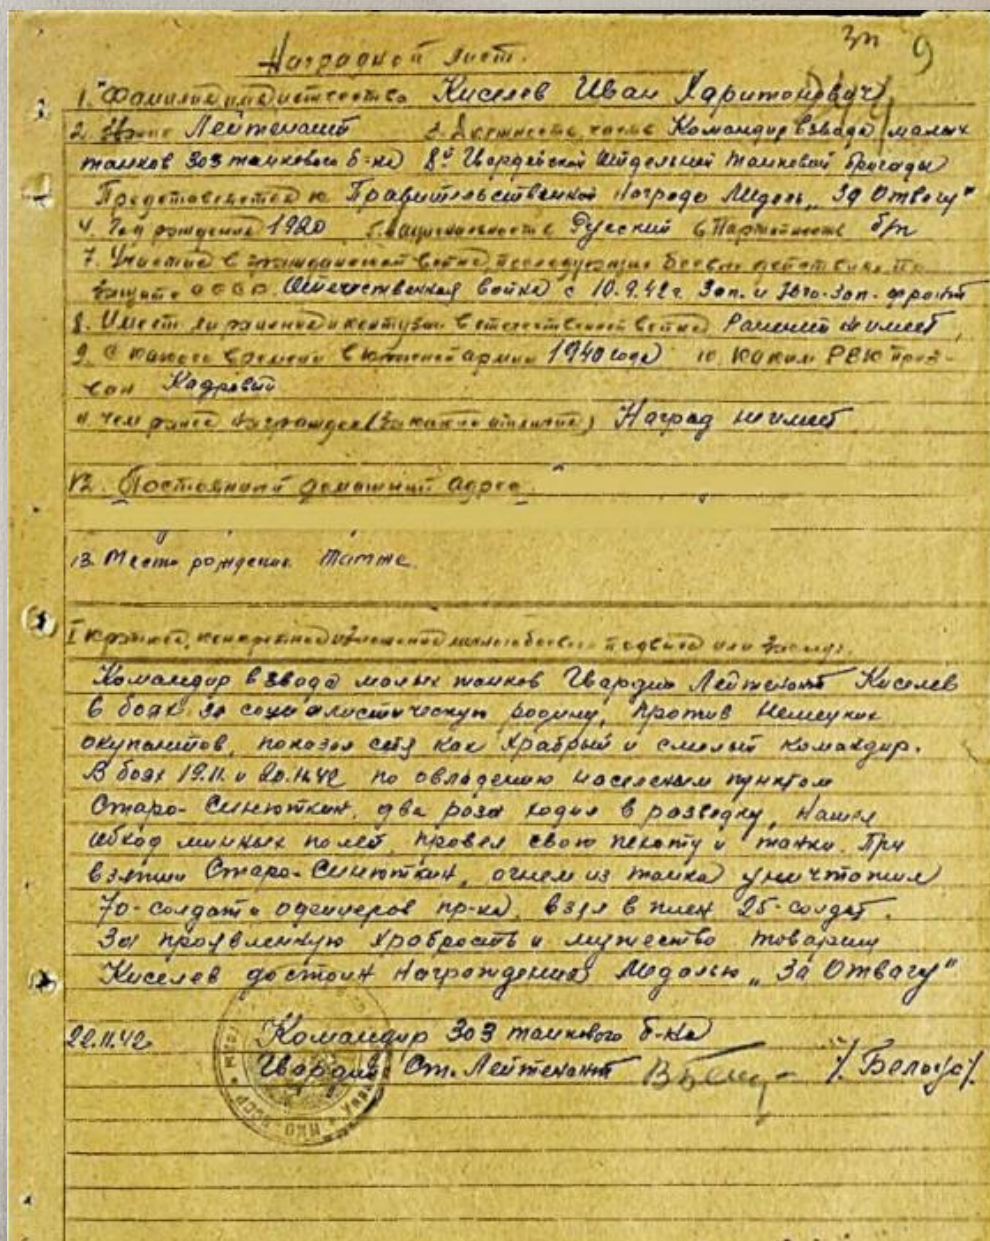 Наградной лист.
9
1. Фамилия имя и отчество Киселев Иван Харитонович
2. Звание Лейтенант 3. Должность, часть Командир взвода малых
танков 303 танкового б-на 8й Гвардейской Отдельной Танковой бригады
Представляется к Правительственной Награде Медаль „За Отвагу"
4. Год рождения 1920 5. Национальность Русский 6 Партийность б/п
7. Участие в гражданской войне, последующих боевых действиях по
защите СССР Отечественная война с 10.9.42г. Зап. и Юго-Зап. фронт
8. Имеет ли ранения и контузии в отечественной войне Ранений не имеет
9. С какого времени в Красной армии 1940 года 10. Каким РВК приз-
ван Кадровый
11. Чем ранее награжден (за какие отличия) Наград не имеет
12. Постоянный домашний адрес
13. Место рождения Там же
I Краткое, конкретное изложение личного боевого подвига или заслуг.
Командир взвода малых танков Гвардии Лейтенант Киселев
в боях за социалистическую родину, против Немецких
окупантов, показал себя как храбрый и смелый командир.
В боях 19.11 и 20.11.42 по овладению населеным пунктом
Старо-Синюткин, два раза ходил в разведку, нашел
обход минных полей, провел свою пехоту и танки. При
взятии Старо-Синюткин, огнем из танка уничтожил
70-солдат и офицеров пр-ка, взял в плен 25-солдат.
За проявленную храбрость и мужество товарищ
Киселев достоин Награждения Медалью „За Отвагу"
22.11.42. Командир 303 танкового б-на
Гвардии Ст. Лейтенант /Белоус/